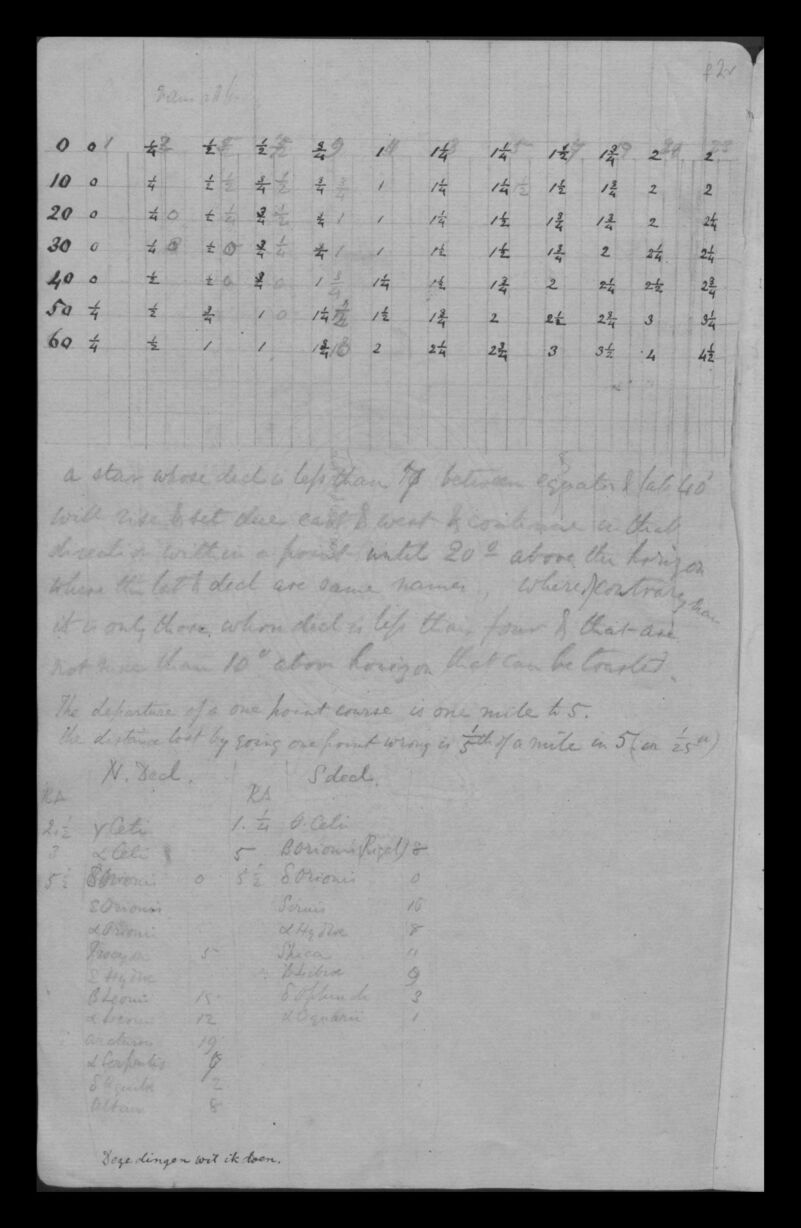 0 0 ¼ ½ ½ ¾ 1 1¼ 1¼ 1½ 1¾ 2 2
10 0 ¼ ½ ¾ ¾ 1 1¼ 1¼ 1½ 1¾ 2 2
20 0 ¼ ½ ¾ ¾ 1 1¼ 1½ 1¾ 1¾ 2 2¼
30 0 ¼ ½ ¾ ¾ 1 1½ 1½ 1¾ 2 2¼ 2¼
40 0 ½ ½ ¾ 1 1¼ 1½ 1¾ 2 2¼ 2½ 2¾
50 ¼ ½ ¾ 1 1¼ 1½ 1¾ 2 2½ 2¾ 3 3¼
60 ¼ ½ 1 1 1¾ 2 2¼ 2¾ 3 3½ 4 4½
a star whose decl is less than 7 between equator & lat 40°
will rise & set due east & west & continue in that
direction within a point until 20° above the horizon
where the lat & decl are same names, where contrary than
it is only those whose decl is less than four & that are
not more than 10° above horizon that can be trusted.
The departure of a one point course is one mile to 5.
The distance lost by going one point wrong is 1/5th of a mile in 5 (or 1/25th)
N. Decl. S decl.
RA RA
2½ γ Ceti 1.¼ β Ceti
3 α Ceti 5 β Orionis (Rigel) 8
5½ δ Orionis 0 5½ δ Orionis 0
ε Orionis Sirius 16
α Orionis α Hydrae 8
Procyon 5 Spica 11
ε Hydrae β Librae 9
β Leonis 15 δ Ophiuchi 3
α Leonis 12 α Aquarii 1
Arcturus 19
α Serpentis 6
δ Aquilae 2
Altair 8
Deze dingen wil ik doen.